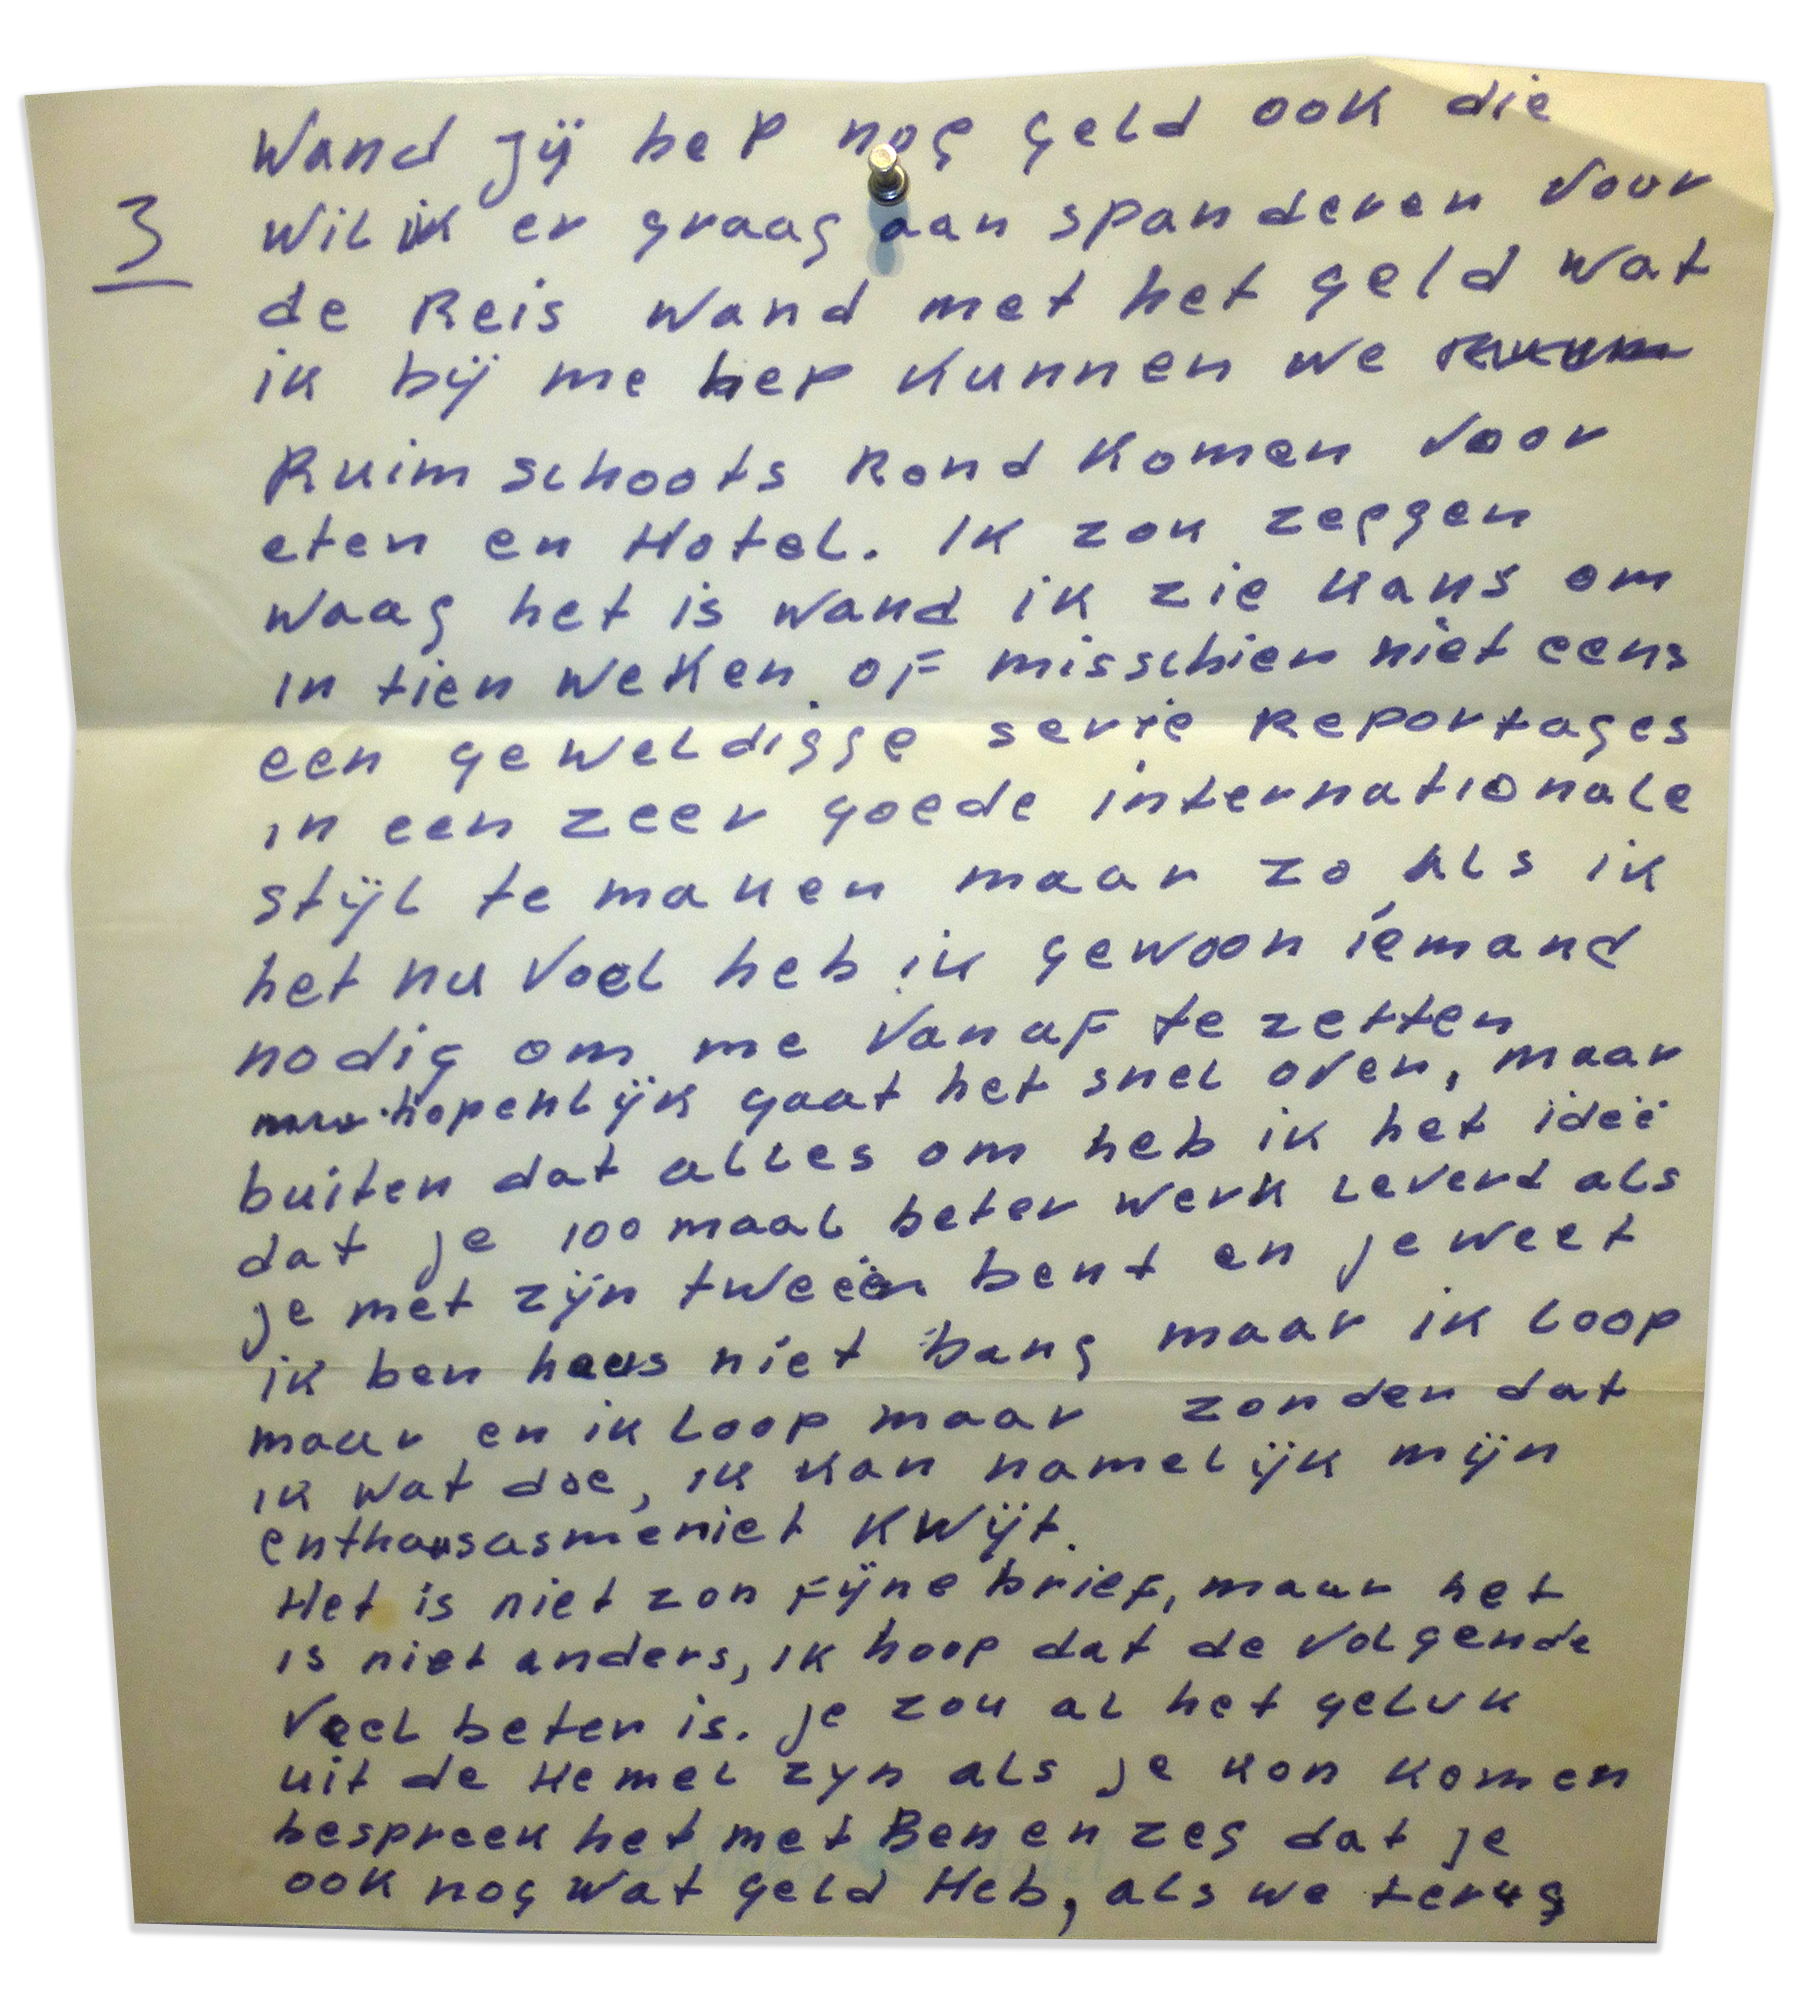 Wand jij hep nog geld ook die
3
wil ik er graag aan spanderen voor
de Reis wand met het geld wat
ik bij me hep kunnen we
Ruimschoots Rond komen voor
eten en Hotel. Ik zou zeggen
waag het is wand ik zie kans om
in tien weken of misschien niet eens
een geweldigge serie Reportages
in een zeer goede internationale
stijl te maken maar zo als ik
het nu voel heb ik gewoon iemand
nodig om me vanaf te zetten
hopenlijk gaat het snel over, maar
buiten dat alles om heb ik het ideë
dat je 100 maal beter werk leverd als
je met zijn tweeën bent en je weet
ik ben heus niet bang maar ik loop
maar en ik loop maar zonder dat
ik wat doe, ik kan namelijk mijn
enthousasme niet kwijt.
Het is niet zon fijne brief, maar het
is niet anders, ik hoop dat de volgende
veel beter is. je zou al het geluk
uit de Hemel zyn als je kon komen
bespreek het met Ben en zeg dat je
ook nog wat geld Heb, als we terug